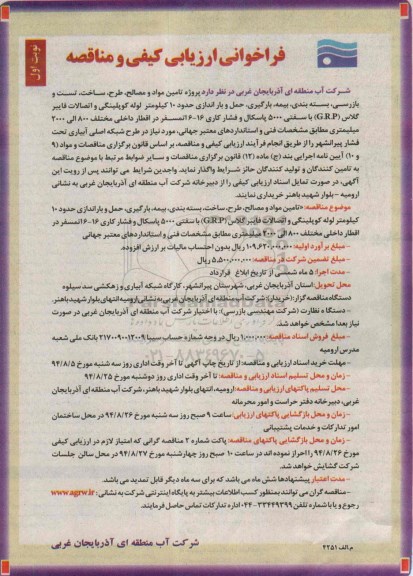 نوبت اول
فراخوانی ارزیابی کیفی و مناقصه
شرکت آب منطقه ای آذربایجان غربی در نظر دارد پروژه تامین مواد و مصالح، طرح، ساخت، تست و
بازرسی، بسته بندی، بیمه، بارگیری، حمل و بار اندازی حدود ۱۰ کیلومتر لوله کوپلینگی و اتصالات فایبر
گلاس (G.R.P) با سفتی ۵۰۰۰ پاسکال و فشار کاری ۱۶-۱۶ اتمسفر در اقطار داخلی مختلف ۸۰۰ الی ۲۰۰۰
میلیمتری مطابق مشخصات فنی و استانداردهای معتبر جهانی، مورد نیاز در طرح شبکه اصلی آبیاری تحت
فشار پیرانشهر را از طریق انجام فرآیند ارزیابی کیفی و مناقصه، بر اساس قانون برگزاری مناقصات و مواد (۹
و ۱۰) آیین نامه اجرایی بند (ج) ماده (۱۲) قانون برگزاری مناقصات و سایر ضوابط مرتبط با موضوع مناقصه
به تامین کنندگان و تولید کنندگان حائز شرایط واگذار نماید. واجدین شرایط می توانند پس از رویت این
آگهی، در صورت تمایل اسناد ارزیابی کیفی را از دبیرخانه شرکت آب منطقه ای آذربایجان غربی به نشانی
ارومیه - بلوار شهید باهنر خریداری نمایند.
موضوع مناقصه: «تامین مواد و مصالح، طرح، ساخت، بسته بندی، بیمه، بارگیری، حمل و باراندازی حدود ۱۰
کیلومتر لوله کوپلینگی و اتصالات فایبر گلاس (G.R.P) با سفتی ۵۰۰۰ پاسکال و فشار کاری ۱۶-۱۶ اتمسفر در
اقطار داخلی مختلف ۸۰۰ الی ۲۰۰۰ میلیمتری مطابق مشخصات فنی و استانداردهای معتبر جهانی
- مبلغ برآورد اولیه: ۱۰۹,۶۲۰,۰۰۰,۰۰۰ ریال بدون احتساب مالیات بر ارزش افزوده.
- مبلغ تضمین شرکت در مناقصه: ۵,۵۰۰,۰۰۰,۰۰۰ ریال
- مدت اجرا: ۵ ماه شمسی از تاریخ ابلاغ قرارداد
محل تحویل: استان آذربایجان غربی، شهرستان پیرانشهر، کارگاه شبکه آبیاری و زهکشی سد سیلوه
دستگاه مناقصه گزار: (خریدار): شرکت آب منطقه ای آذربایجان غربی، به نشانی: ارومیه انتهای بلوار شهید باهنر.
- دستگاه نظارت (شرکت مهندسی بازرسی): با اختیار شرکت آب منطقه ای آذربایجان غربی در صورت
نیاز بعدا مشخص خواهد شد.
- مبلغ فروش اسناد مناقصه: ۱,۰۰۰,۰۰۰ ریال در وجه شماره حساب سیبا ۲۱۷۰۰۹۰۱۲۰۰۹ بانک ملی شعبه
مدرس ارومیه
- مهلت خرید اسناد ارزیابی و مناقصه: از تاریخ چاپ آگهی تا آخر وقت اداری روز سه شنبه مورخ ۹۴/۸/۵
- زمان و محل تسلیم اسناد ارزیابی و مناقصه: تا آخر وقت اداری روز دوشنبه مورخ ۹۴/۸/۲۵
- محل تسلیم پاکتهای ارزیابی و مناقصه: ارومیه، انتهای بلوار شهید باهنر، شرکت آب منطقه ای آذربایجان
غربی، دبیرخانه دفتر حراست و امور محرمانه
- زمان و محل بازگشایی پاکتهای ارزیابی: ساعت ۹ صبح روز سه شنبه مورخ ۹۴/۸/۲۶ در محل ساختمان
امور تدارکات و خدمات پشتیبانی
- زمان و محل بازگشایی پاکتهای مناقصه: پاکت شماره ۲ مناقصه گرانی که امتیاز لازم در ارزیابی کیفی
مورخ ۹۴/۸/۲۶ را احراز نموده اند در ساعت ۱۰ صبح روز چهارشنبه مورخ ۹۴/۸/۲۷ در محل سالن جلسات
شرکت گشایش خواهد شد.
- مدت اعتبار پیشنهادها شش ماه می باشد که برای سه ماه دیگر قابل تمدید می باشد.
- مناقصه گران می توانند بمنظور کسب اطلاعات بیشتر به پایگاه اینترنتی شرکت به نشانی: www.agrw.ir
رجوع و یا با شماره تلفن ۳۳۴۴۹۳۹۹-۰۴۴ اداره تدارکات تماس حاصل فرمایند.
شرکت آب منطقه ای آذربایجان غربی
م الف ۲۲۵۱